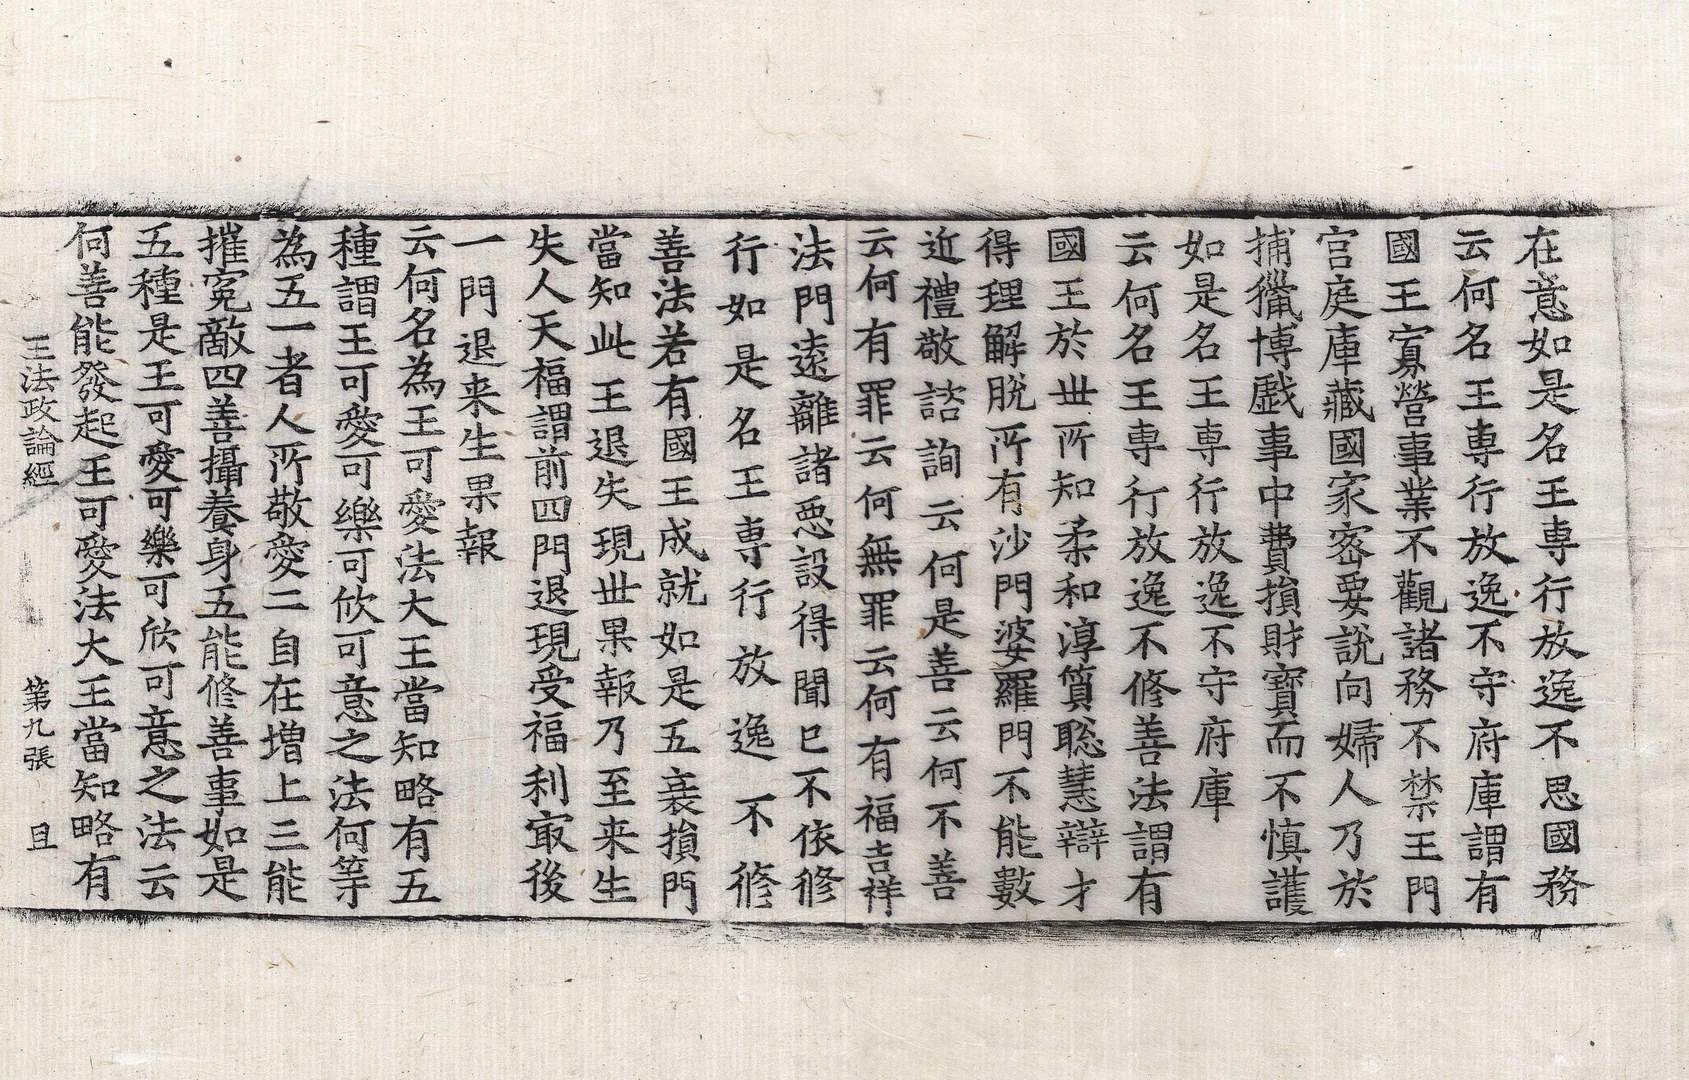 在意如是名王専行放逸不思國務
云何名王専行放逸不守府庫謂有
國王寡營事業不觀諸務不禁王門
宮庭庫藏國家密要說向婦人乃於
捕獵博戯事中費損財寶而不慎護
如是名王専行放逸不守府庫
云何名王専行放逸不修善法謂有
國王於丗所知柔和淳質聡慧辯才
得理解脫所有沙門婆羅門不能數
近禮敬諮詢云何是善云何不善
云何有罪云何無罪云何有福吉祥
法門遠離諸惡設得聞已不依修
行如是名王専行放逸不修
善法若有國王成就如是五衰損門
當知此王退失現丗果報乃至来生
失人天福謂前四門退現受福利㝡後
一門退来生果報
云何名為王可愛法大王當知略有五
種謂王可愛可樂可欣可意之法何等
為五一者人所敬愛二自在增上三能
摧寃敵四善攝養身五能修善事如是
五種是王可愛可樂可欣可意之法云
何善能發起王可愛法大王當知略有
王法政論經 第九張 旦